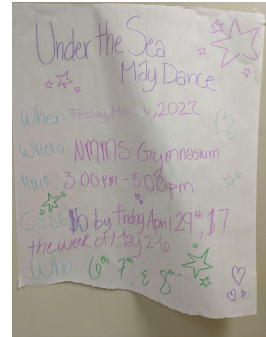 Under the Sea
May Dance
When Friday, May 6, 2022
Where NMMS Gymnasium
time 3:00pm-5:08pm
Cost $6 by Friday April 29th, $7
the week of May 2-6
Who 6th, 7th, & 8th